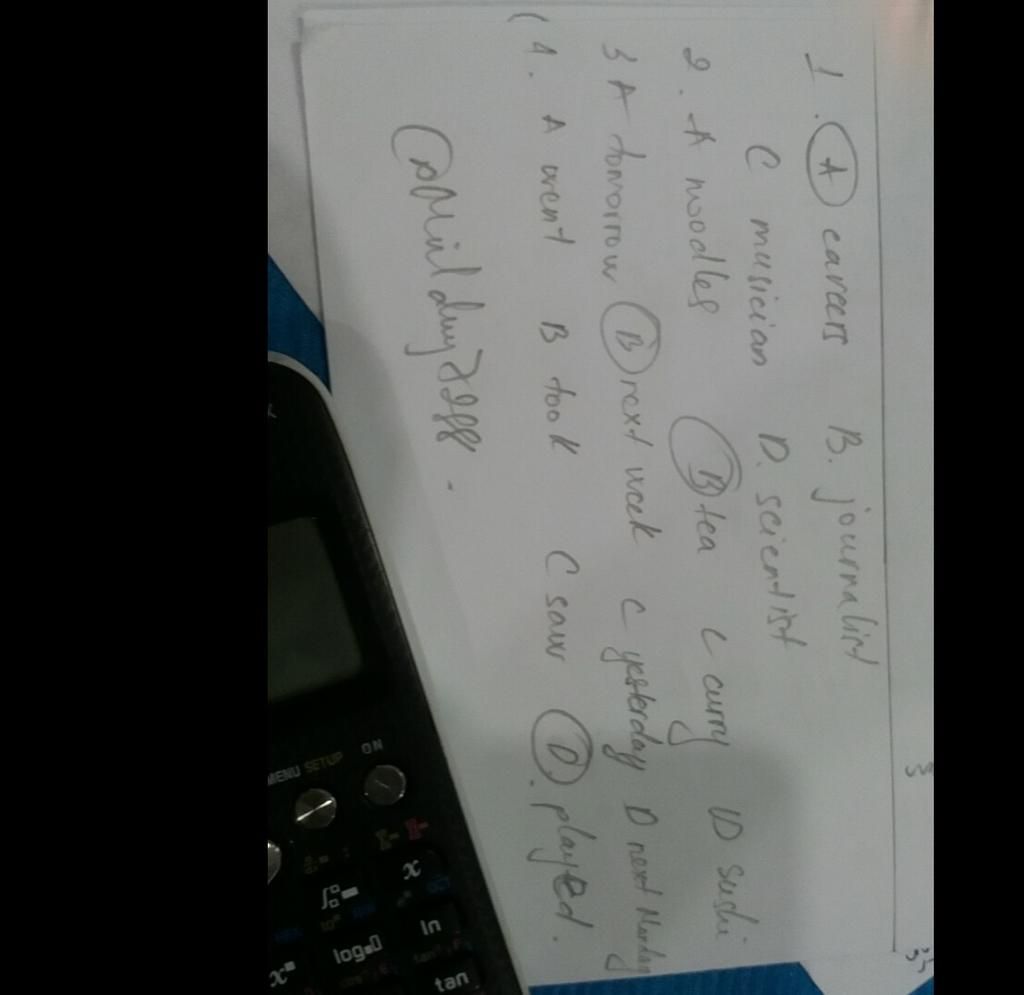 1. A careers B. journalist
C musician D. scientist
2. A noodles B tea C curry D sushi
3 A tomorrow B next week C yesterday D next Monday
4. A went B took C saw D. played.
ON
MENU SETUP
x
ln
log
tan